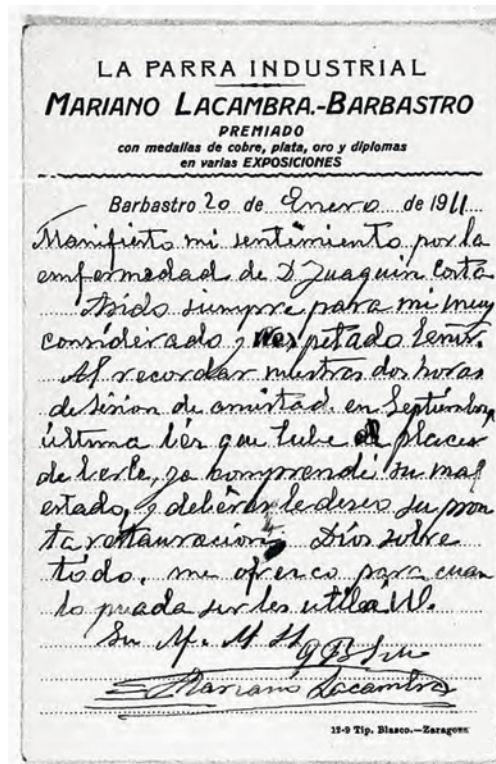 LA PARRA INDUSTRIAL
MARIANO LACAMBRA.-BARBASTRO
PREMIADO
con medallas de cobre, plata, oro y diplomas
en varias EXPOSICIONES
Barbastro 20 de Enero de 1911
Manifiesto mi sentimiento por la
emfermedad de D Juaquin Costa
Asido siempre para mi muy
considerado y respetado Señor.
Al recordar nuestras dos horas
de sision de amistad. en Septiembre
última bés que tube el placer
de berle, ya comprendi su mal
estado, y debéras le deseo su pron
ta restauracion, Dios sobre
tódo. me ofrezco para cuan
to pueda serles util á U.
Su
Mariano Lacambra
12-9 Tip. Blasco.—Zaragoza